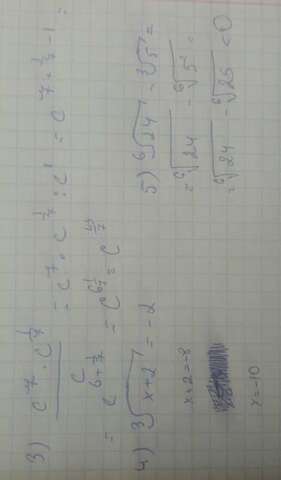 3) \frac{c^7 \cdot c^{\frac{1}{7}}}{c} = c^7 \cdot c^{\frac{1}{7}} : c^1 = c^{7+\frac{1}{7}-1} =
= c^{6+\frac{1}{7}} = c^{6\frac{1}{7}} = c^{\frac{43}{7}}
4) \sqrt[3]{x+2} = -2
x+2=-8
x=-10
5) \sqrt[6]{24} - \sqrt[3]{5} =
= \sqrt[6]{24} - \sqrt[6]{5^2} =
= \sqrt[6]{24} - \sqrt[6]{25} < 0